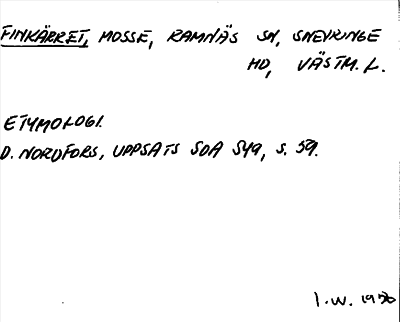 FINKÄRRET, MOSSE, RAMNÄS SN, SNEVRINGE
HD, VÄSTM. L.
ETYMOLOGI.
D. NORDFORS, UPPSATS SOA S49, S. 59.
I.W. 1956